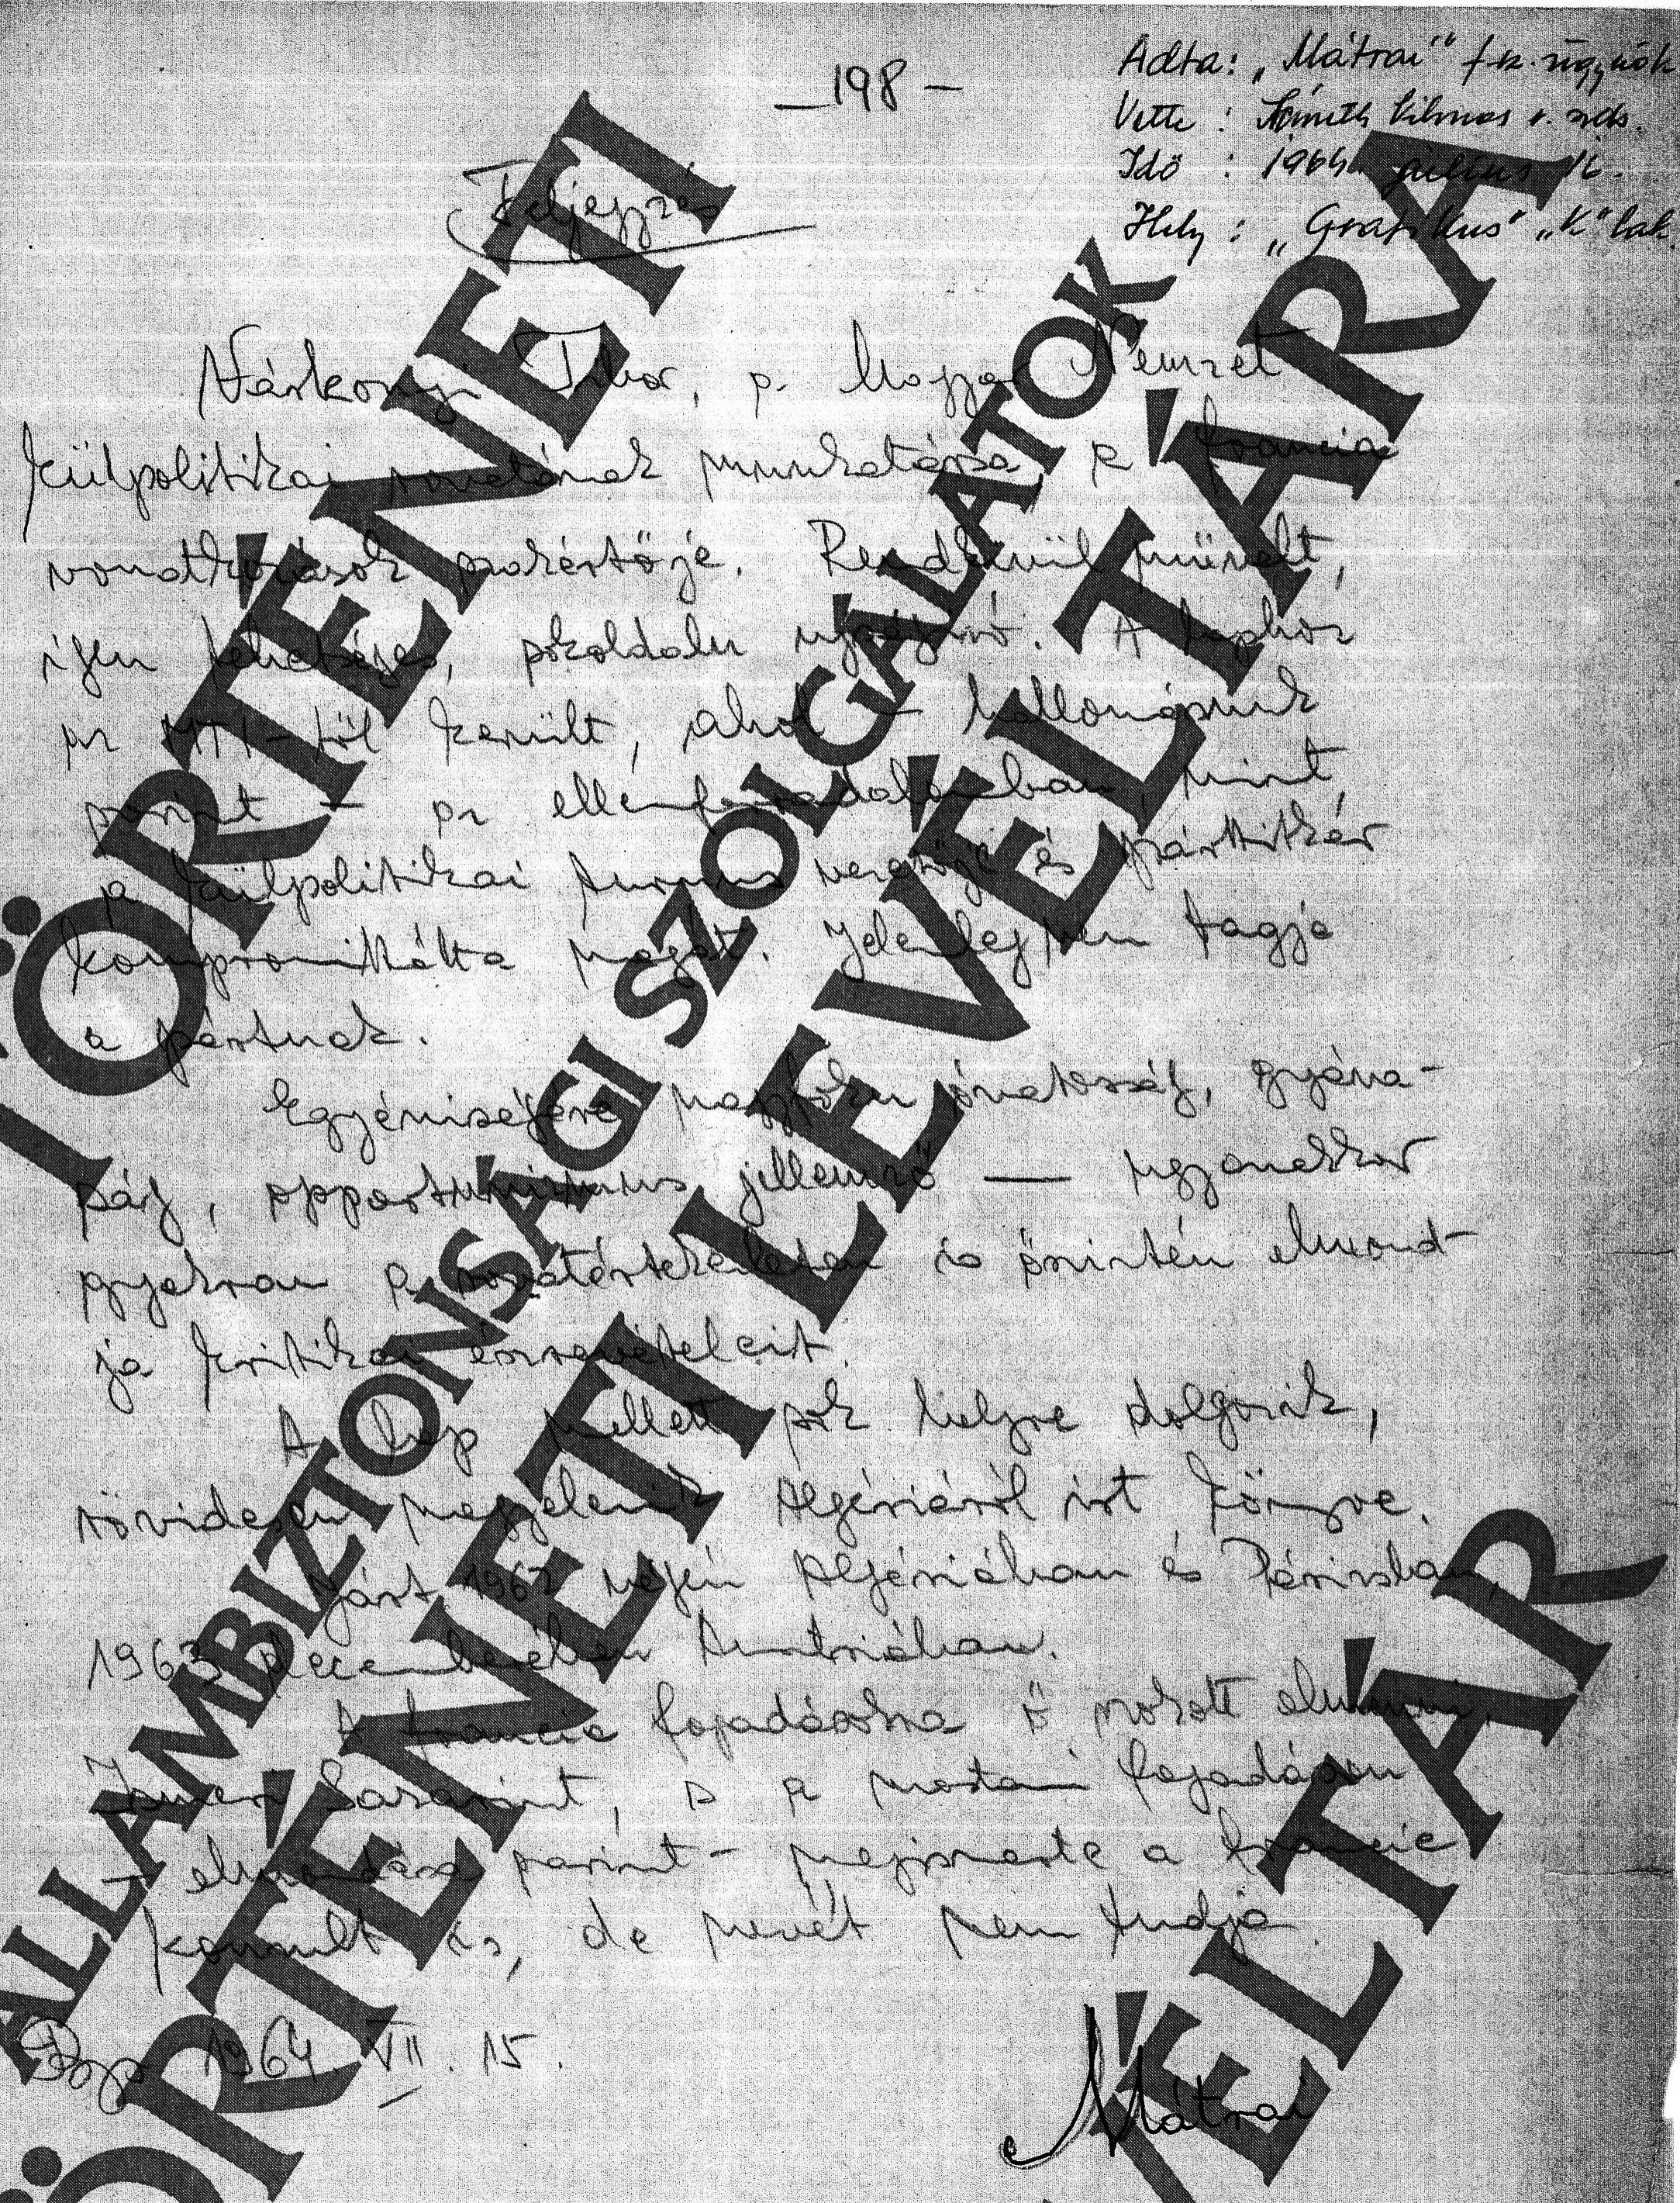 — 198 —
Adta: „Mátrai" fn. ügynök
Vette : Németh Vilmos r. szds.
Idő : 1964. július 16.
Hely : „Grafikus" „K" lak
Feljegyzés
Várkonyi Tibor, a Magyar Nemzet
külpolitikai rovatának munkatársa, a francia
vonatkozások szakértője. Rendkívül művelt,
igen tehetséges, sokoldalu ujságíró. A laphoz
az MTI-től került, ahol – hallomásunk
szerint – az ellenforradalomban, mint
a külpolitikai turnus vezetője és párttitkár
kompromittálta magát. Jelenleg nem tagja
a pártnak.
Egyéniségére nagyfoku óvatosság, gyáva-
ság, opportunizmus jellemző — ugyanakkor
gyakran a rovatértekezleten is őszintén elmond-
ja kritikai észrevételeit.
A lap mellett sok helyre dolgozik,
rövidesen megjelenik Algériáról írt könyve.
Járt 1962 végén Algériában és Párizsban,
1963 decemberében Ausztriában.
A francia fogadásokra ő szokott elmenni,
Ismeri a mostani fogadáson
– elmondása szerint – megismerte a francia
konzult is, de nevét nem tudja.
Bp. 1964. VII. 15.
Mátrai
TÖRTÉNETI
ÁLLAMBIZTONSÁGI SZOLGÁLATOK
TÖRTÉNETI LEVÉLTÁRA
LEVÉLTÁR